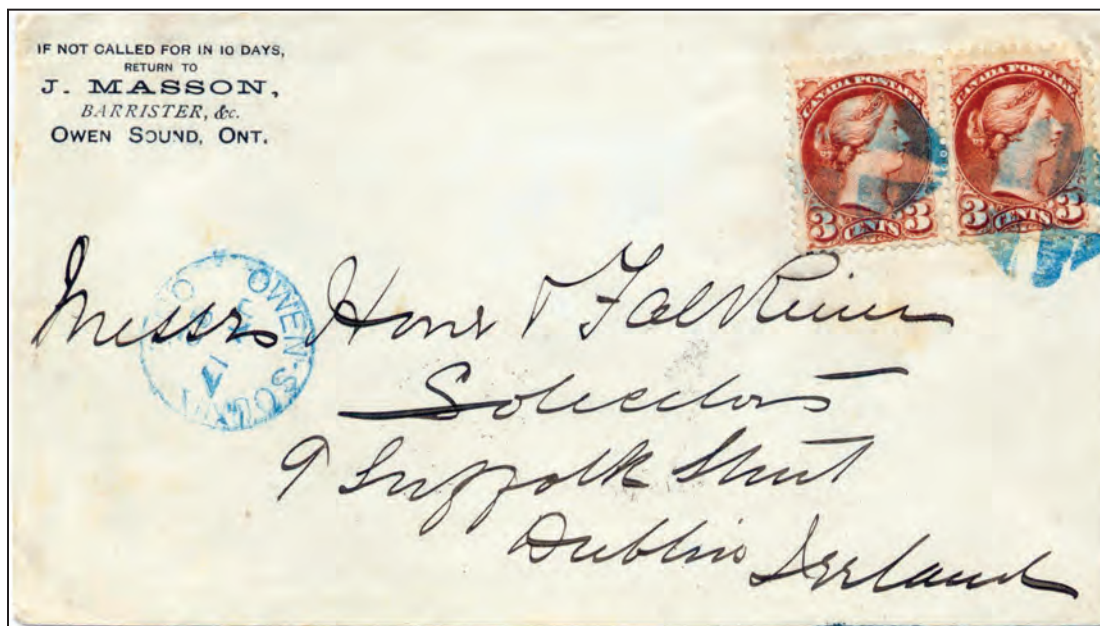 IF NOT CALLED FOR IN 10 DAYS,
RETURN TO
J. MASSON,
BARRISTER, &c.
OWEN SOUND, ONT.
CANADA POSTAGE
3 CENTS 3
CANADA POSTAGE
3 CENTS 3
OWEN-SOUND
17
Messrs Hone & Falkiner
Solicitors
9 Suffolk Street
Dublin Ireland